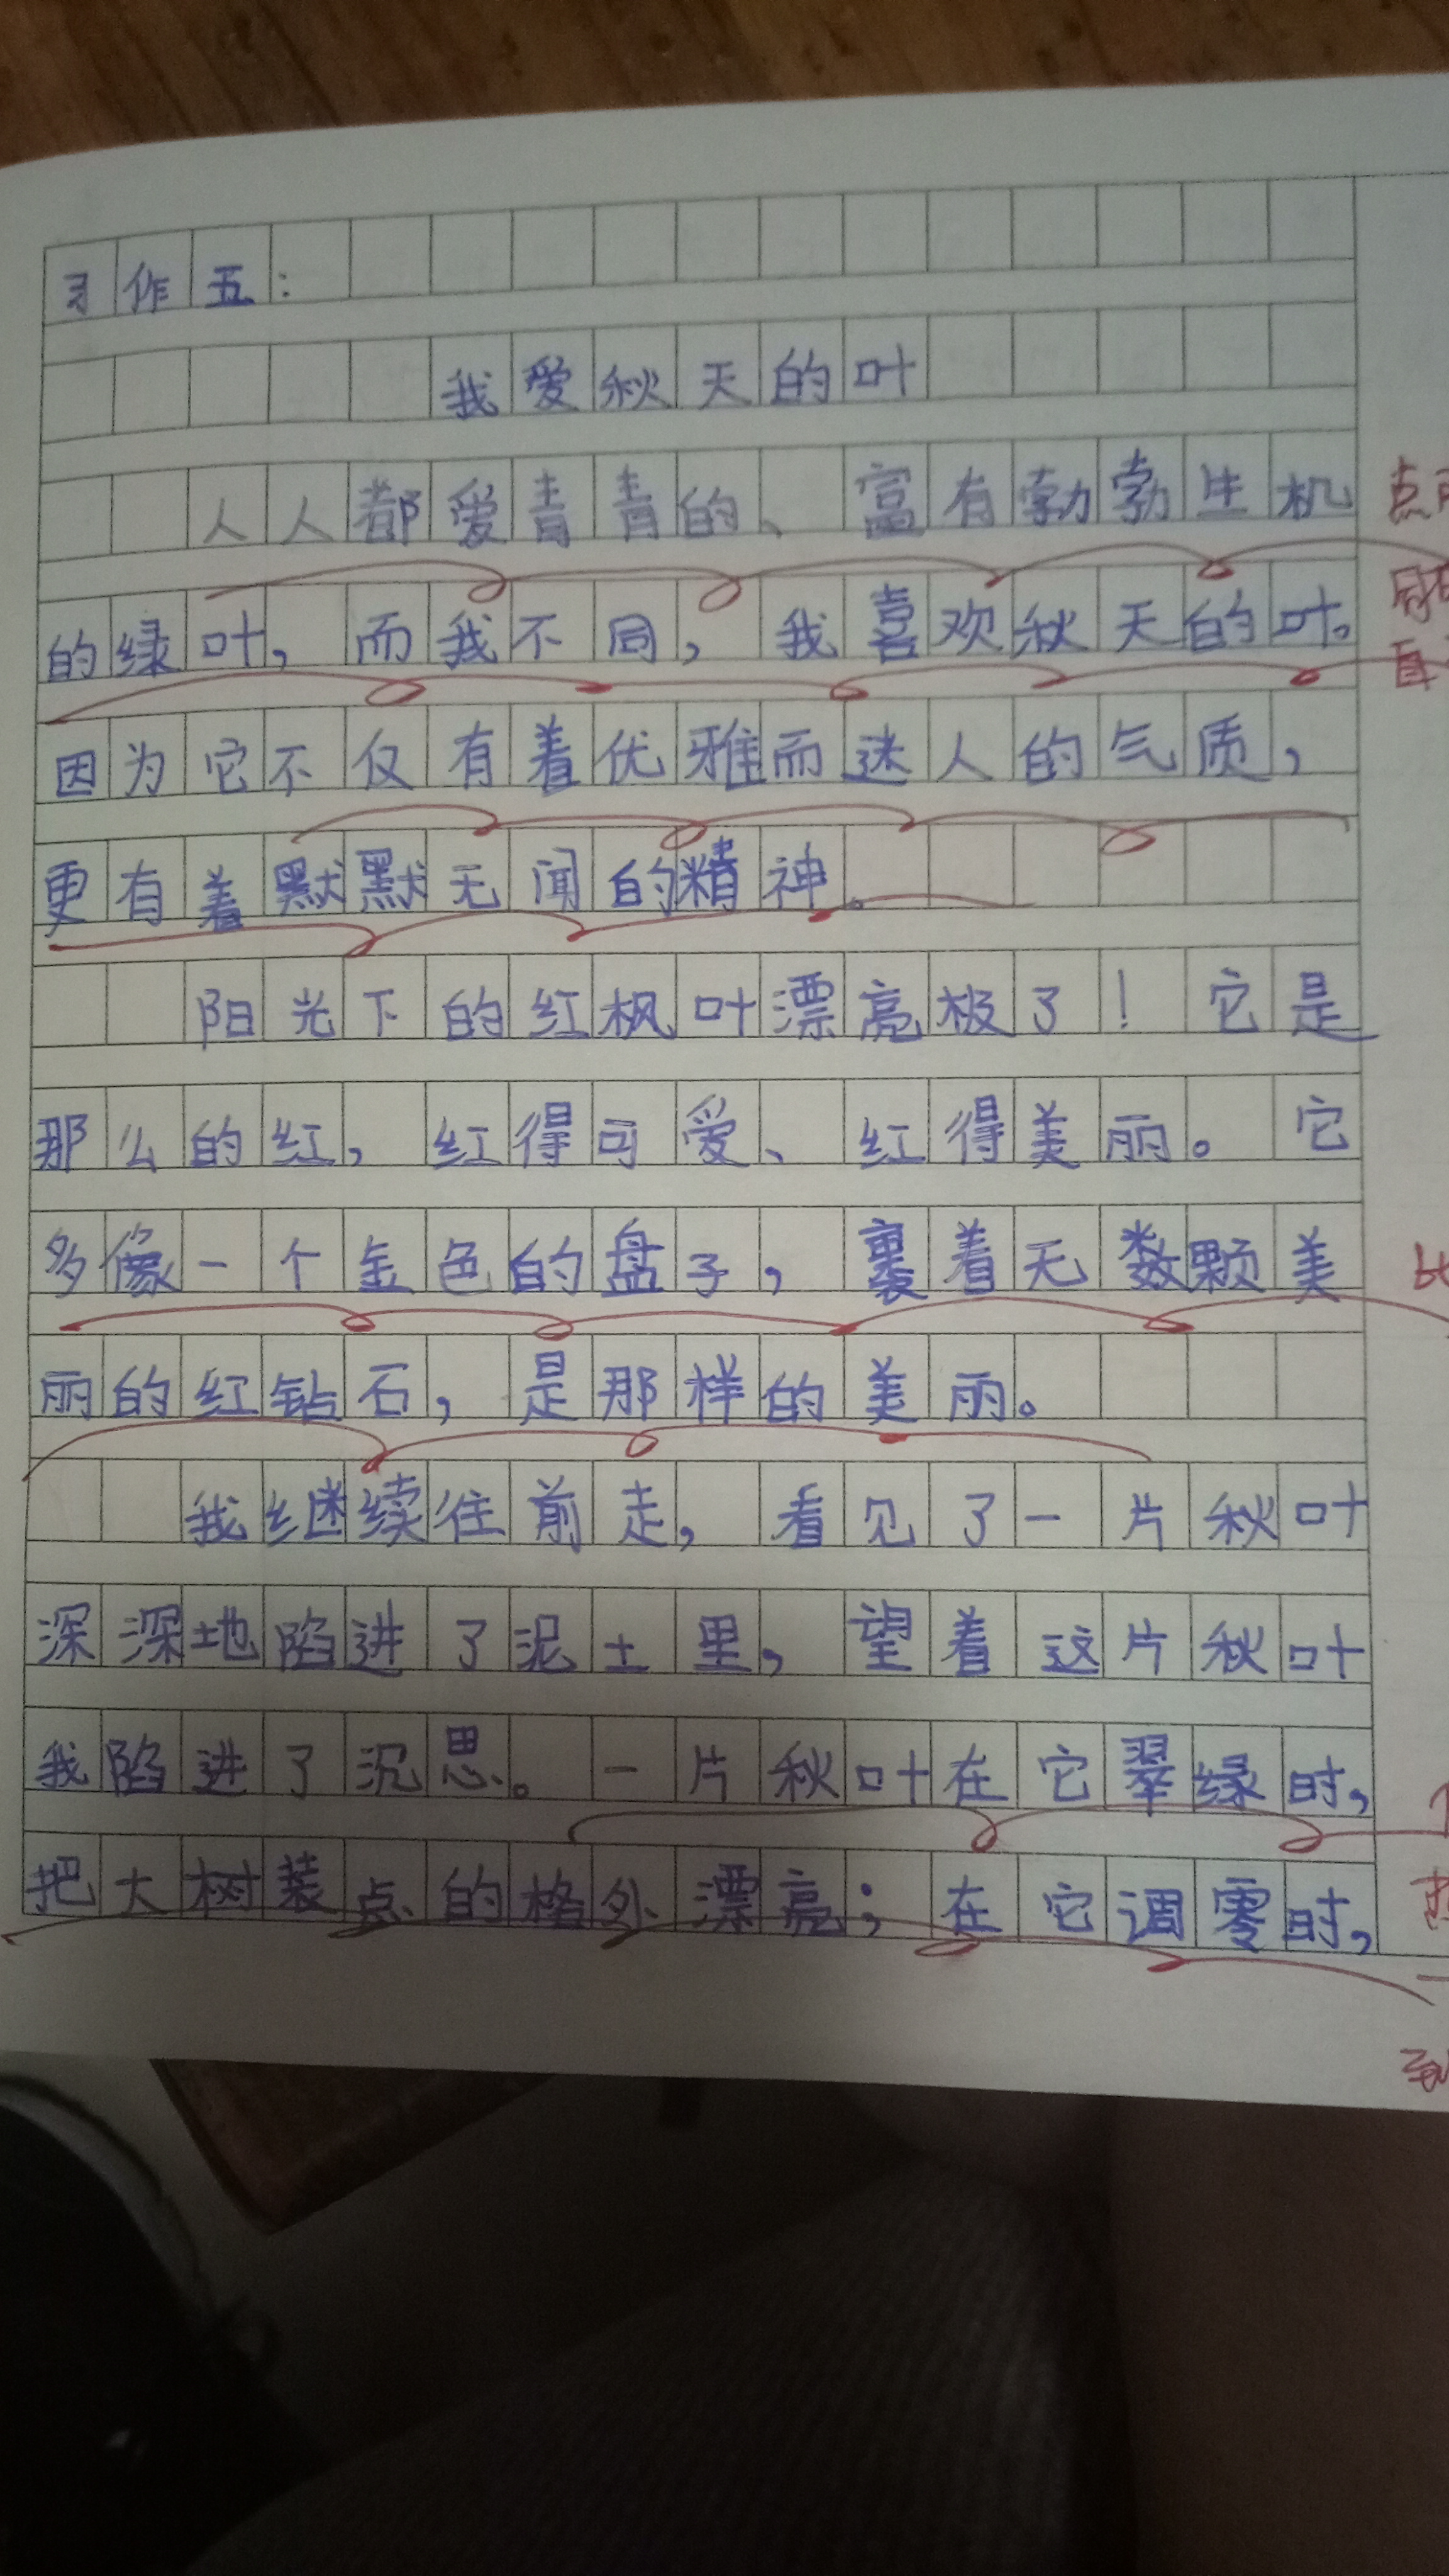 习作五：
我爱秋天的叶
人人都爱青青的、富有勃勃生机
的绿叶，而我不同，我喜欢秋天的叶。
因为它不仅有着优雅而迷人的气质，
更有着默默无闻的精神。
阳光下的红枫叶漂亮极了！它是
那么的红，红得可爱、红得美丽。它
多像一个金色的盘子，裹着无数颗美
丽的红钻石，是那样的美丽。
我继续往前走，看见了一片秋叶
深深地陷进了泥土里，望着这片秋叶
我陷进了沉思。一片秋叶在它翠绿时，
把大树装点的格外漂亮；在它调零时，